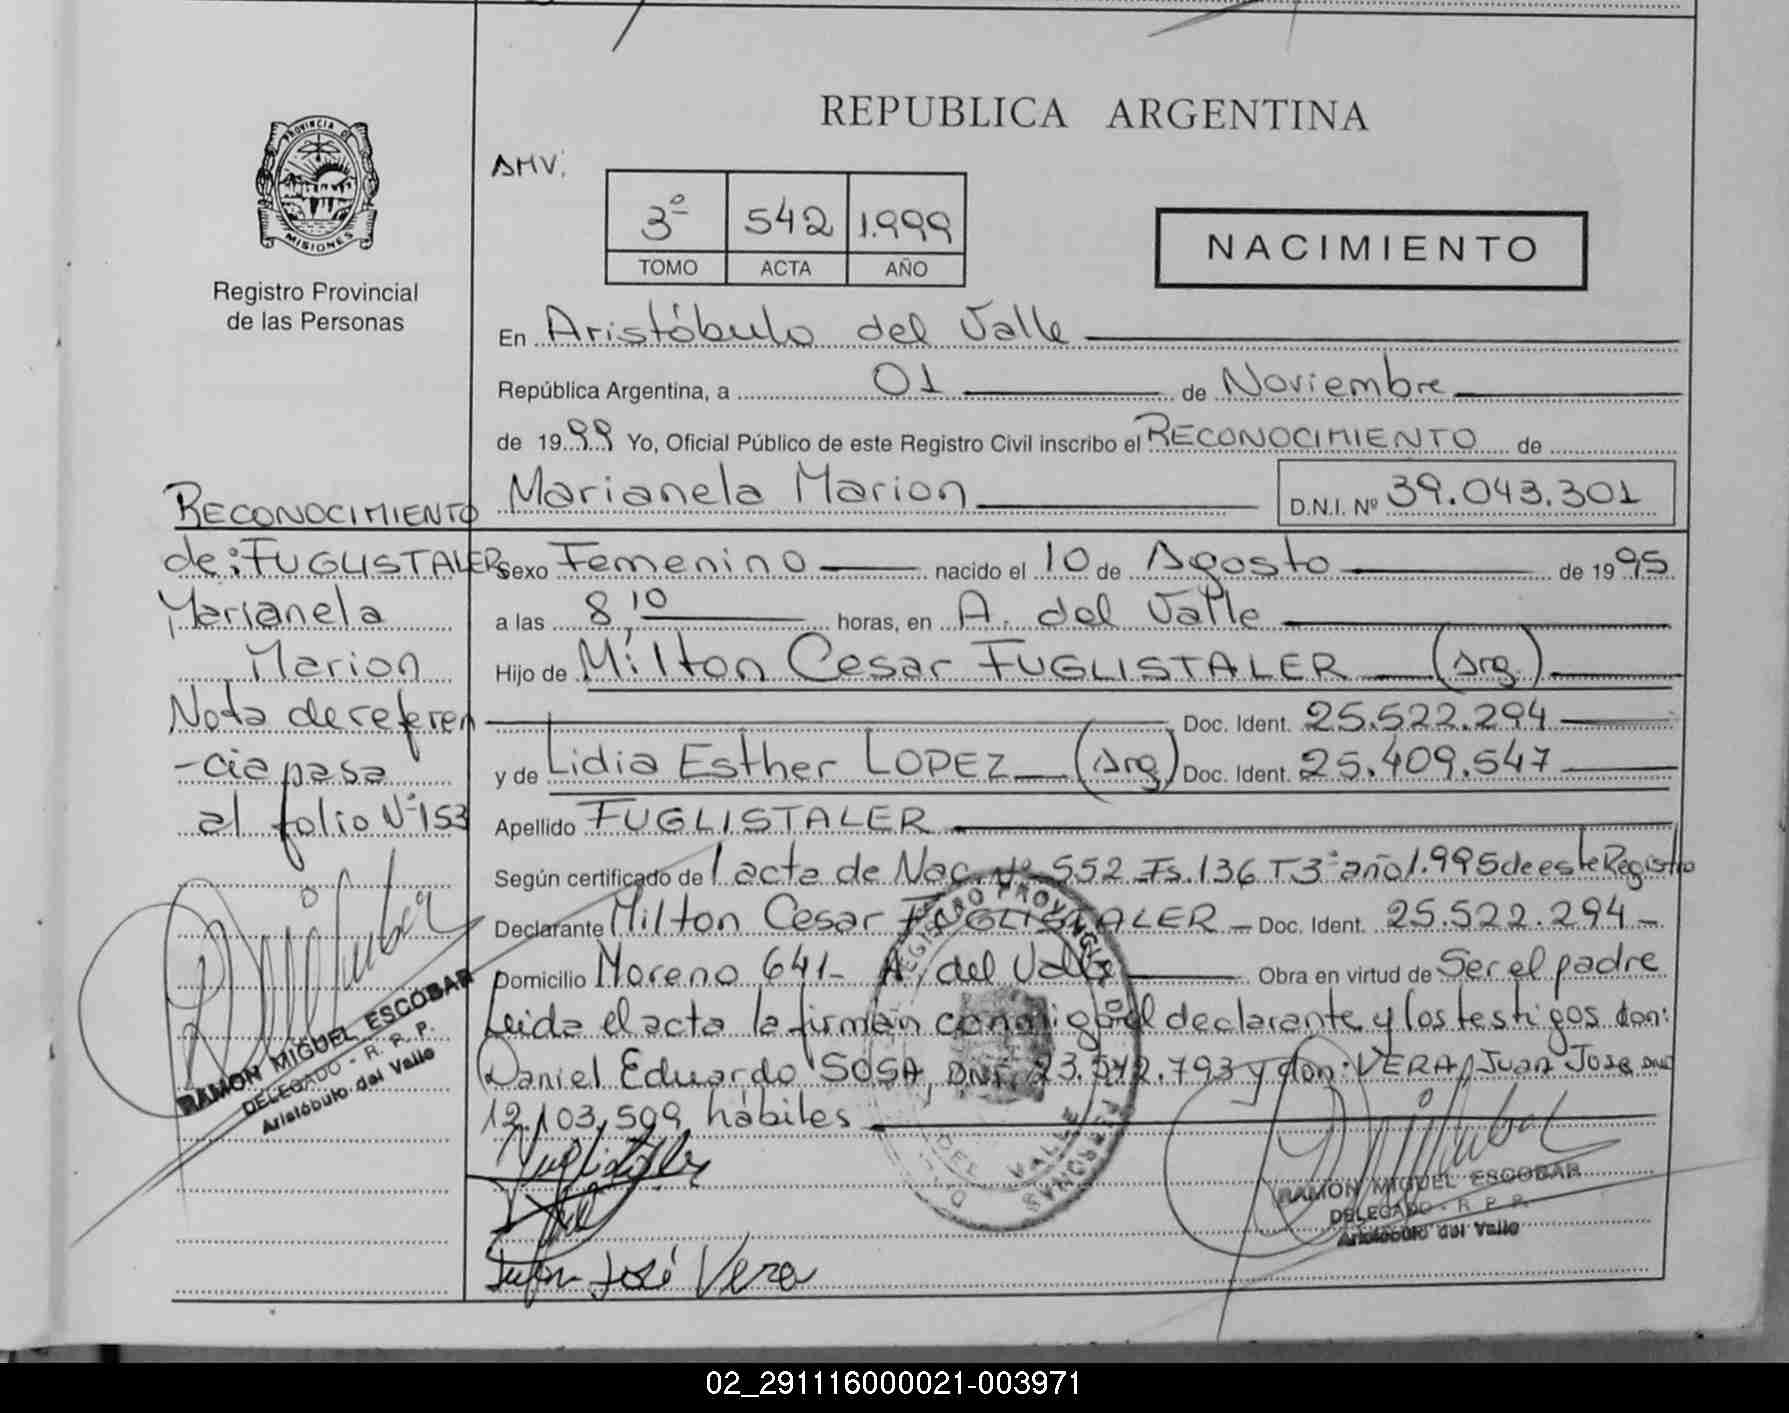 REPUBLICA ARGENTINA
PROVINCIA DE
MISIONES
Registro Provincial
de las Personas
AMV.
3º 542 1.999
TOMO ACTA AÑO
NACIMIENTO
En Aristóbulo del Valle
República Argentina, a 01 de Noviembre
de 1999 Yo, Oficial Público de este Registro Civil inscribo el RECONOCIMIENTO de
Marianela Marion D.N.I. Nº 39.043.301
RECONOCIMIENTO
de: FUGLISTALER
Marianela
Marion
Nota de referen
-cia pasa
al folio Nº 153
RAMON MIGUEL ESCOBAR
DELEGADO - R. R. P.
Aristóbulo del Valle
Sexo Femenino nacido el 10 de Agosto de 1995
a las 8,10 horas, en A. del Valle
Hijo de Milton Cesar FUGLISTALER (Arg.)
Doc. Ident. 25.522.294
y de Lidia Esther LOPEZ (Arg) Doc. Ident. 25.409.547
Apellido FUGLISTALER
Según certificado de l acta de Nac. Nº 552 Fs. 136 T 3º año 1.995 de este Registro
Declarante Milton Cesar FUGLISTALER - Doc. Ident. 25.522.294 -
Domicilio Moreno 641 - A. del Valle Obra en virtud de Ser el padre
Leida el acta la firman conmigo el declarante y los testigos don:
Daniel Eduardo SOSA, DNI. 23.542.793 y don: VERA, Juan Jose DNI
12.103.599 hábiles
REGISTRO PROVINCIAL
DEL VALLE
PERSONAS
RAMON MIGUEL ESCOBAR
DELEGADO - R. R. P.
Aristóbulo del Valle
Juan José Vera
02_291116000021-003971